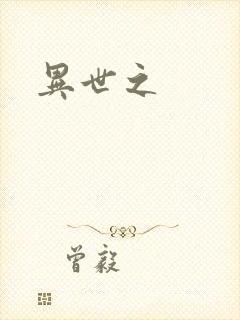 異世之
曾毅